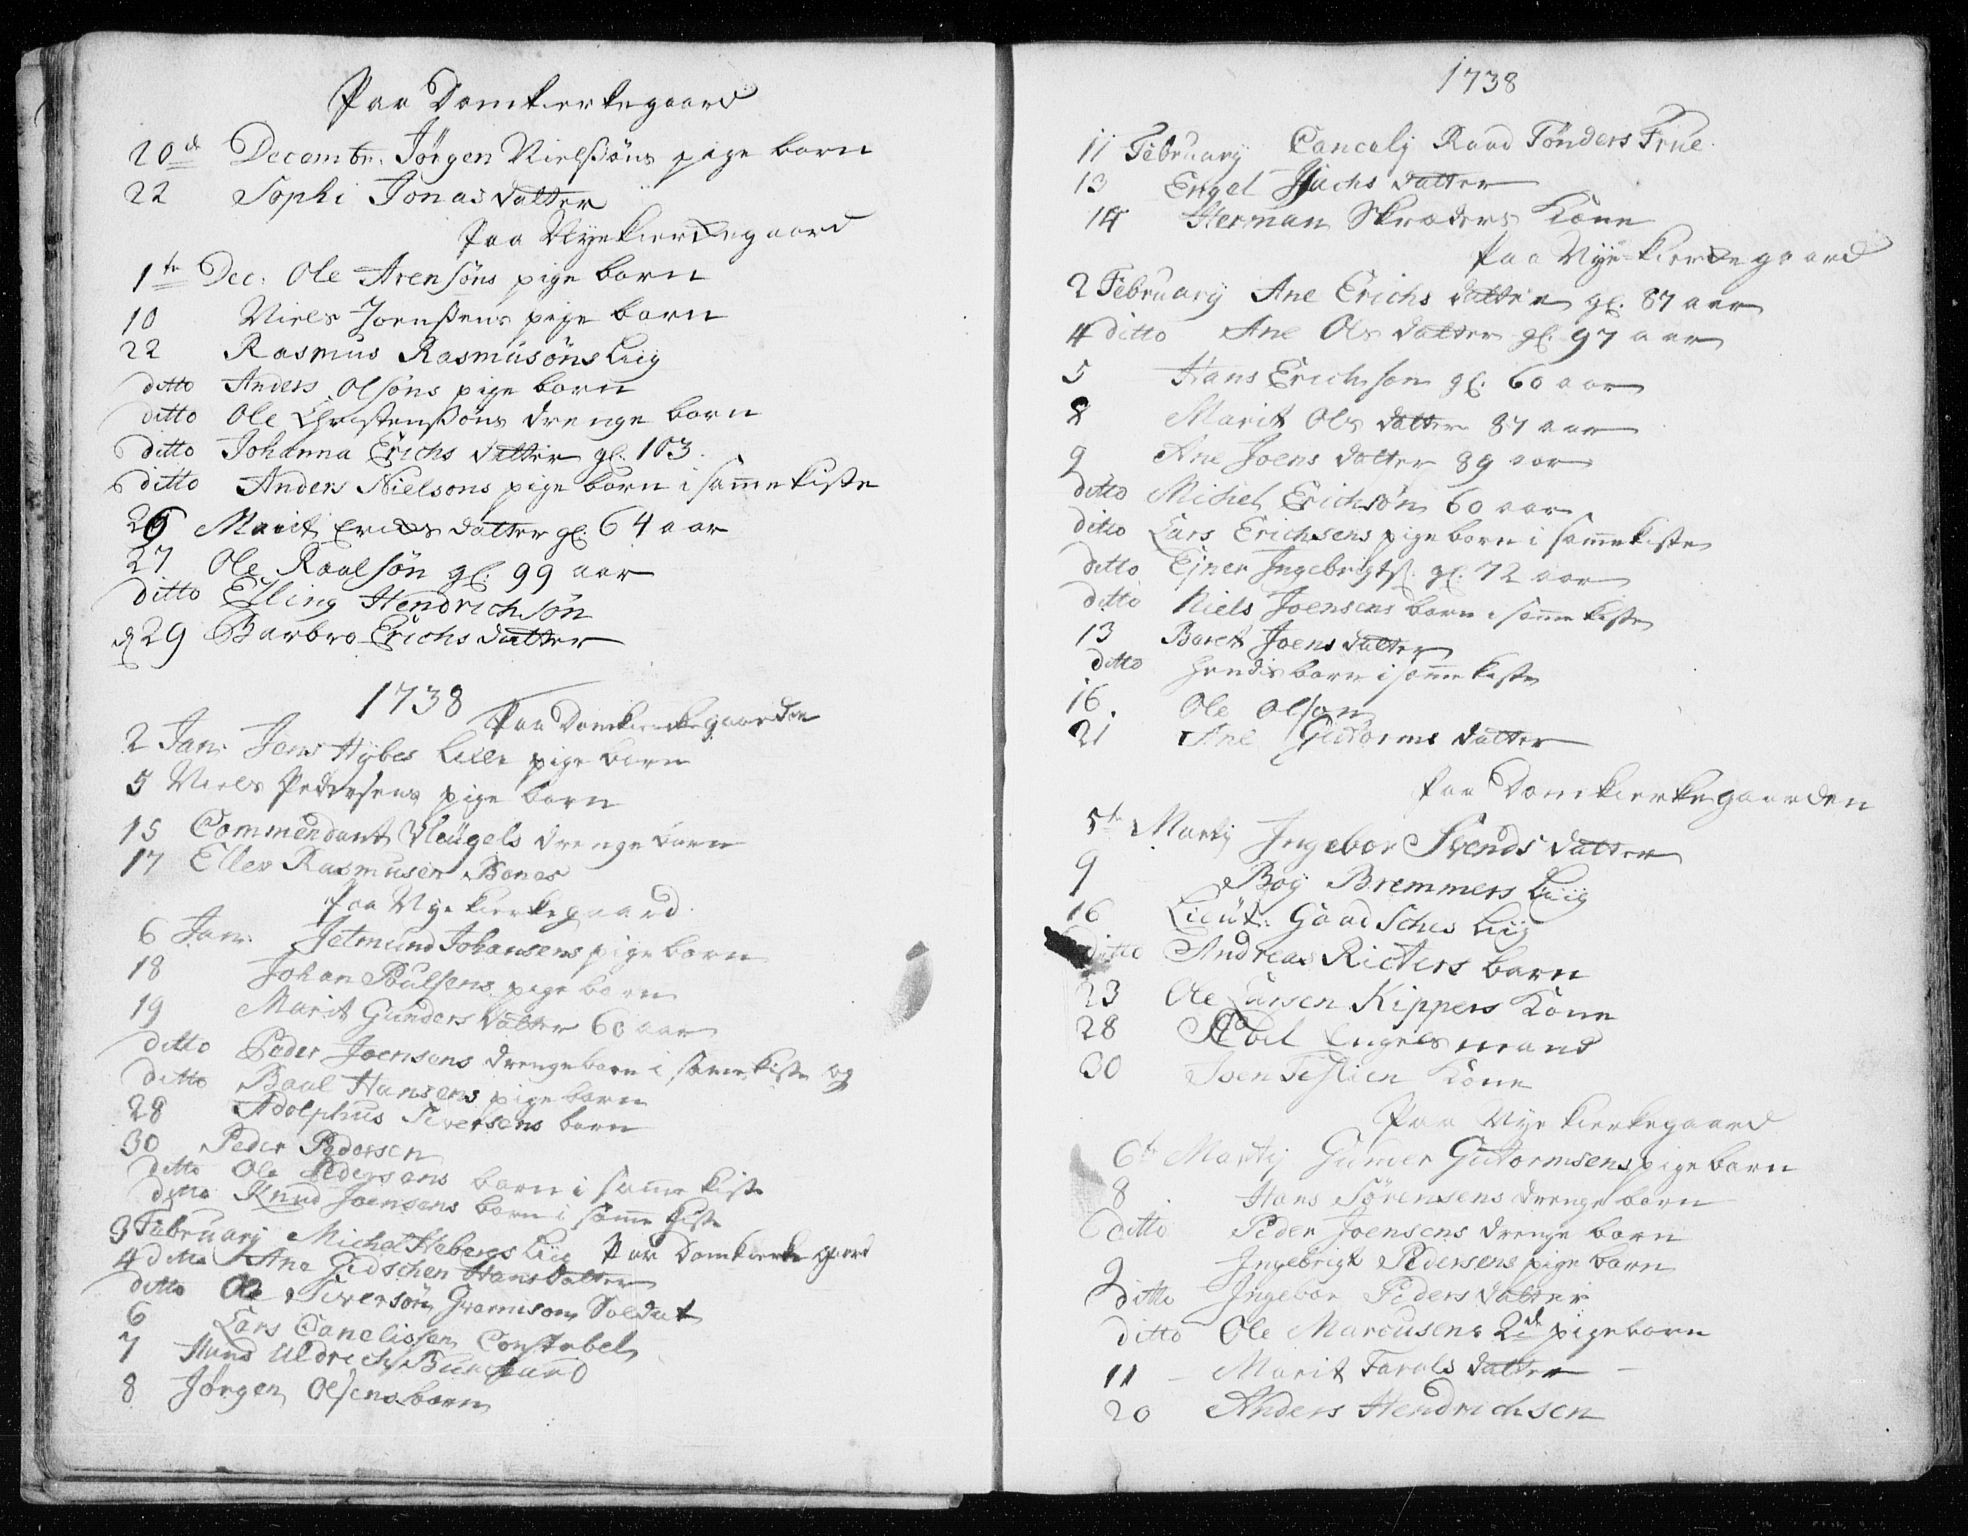 Paa Domkierkegaard
20d Decembr. Jørgen Nielsøns pige barn
22 Sophi Jonas datter
Paa Nyekierkegaard
1te Dec: Ole Arensøns pige barn
10 Niels Joenssens pige barn
22 Rasmus Rasmusøns Liig
ditto Anders Olsøns pige barn
ditto Ole Christenssøns drenge barn
ditto Johanna Erichs datter gl. 103.
ditto Anders Nielsons pige barn i samme kiste
26 Marit Erichs datter gl. 64 aar
27 Ole Roalsøn gl. 99 aar
ditto Elling Hendrichsøn
d 29 Barbro Erichs datter
1738
Paa Domkierkegaarden
2 Jan: Jens Hybes Lille pige barn
5 Niels Pedersens pige barn
15 Commendant Fleügels drenge barn
17 Eller Rasmusen Bones
Paa Nye kierkegaard
6 Jan: Jetmund Johansens pige barn
18 Johan Poulsens pige barn
19 Marit Gunders datter 60 aar
ditto Peder Joensens drengebarn i samme kiste og
ditto Baul Hansens pige barn
28 Adolphus Siversens barn
30 Peder Pedersen
ditto Ole Pedersens barn i samme kiste
ditto Knud Joensens barn i samme kiste
3 February Michel Hebergs Liig Paa Domkierke gaard
4 ditto Ane Gidschen Hans datter
ditto Ole Siversøn Guarnison Soldat
6 Lars Danelissen Constabel
7 Hans Uldrich Burchard
8 Jørgen Olsens barn
1738
11 February Cancely Raad Tønders Frue.
13 Engel Jachs datter
14 Herman Skrøders Kone
Paa Nye kierkegaard
2 February Ane Erichs datter gl. 87 aar
4 ditto Ane Ols datter gl. 97 aar
5 Hans Erichson gl. 60 aar
8 Marit Ols datter 87 aar
9 Ane Joens datter 89 aar
ditto Michel Erichsøn 60 aar
ditto Lars Erichsens pige barn i samme kiste
ditto Ejner Ingebrigts. gl. 72 aar
ditto Niels Joensens barn i samme kiste
13 Baret Joens datter
ditto hendis barn i samme kiste
16. Ole Olson
21 Ane Guttorms datter
Paa Domkierkegaarden
5te Marty Ingebor Svends datter
9 Boy Bremmers Liig
16 Lieüt: Gaadsches Liig
ditto Andreas Ricters barn
23 Ole Larsen Kippers Kone
28 Abel Engels mand
30 Sven Kone
Paa Nye kierkegaard
6te Marty Gunder Guttormsens pige barn
8 Hans Sørensens drenge barn
ditto Peder Joensens drenge barn
9 Ingebrigt Pedersens pige barn
ditto Ingebor Peders datter
ditto Ole Marcusens 2de pigebarn
11 - Marit Tarals datter -
20 Anders Hendrichsen